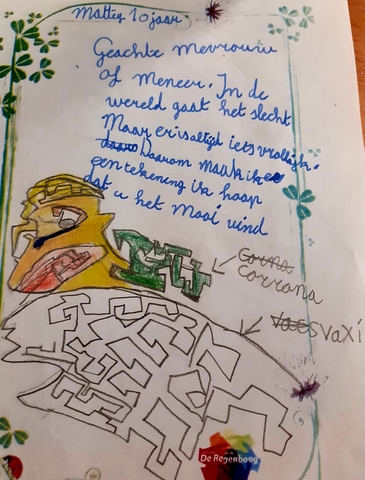 Mattep 10 jaar.
Geachte mevrouw
of meneer. In de
wereld gaat het slecht
Maar er is altijd iets vrollijk.
daaro Daarom maak ik
een tekening ik hoop
dat u het mooi vind
Corna
Corrona
Vac svaxi
De Regenboog